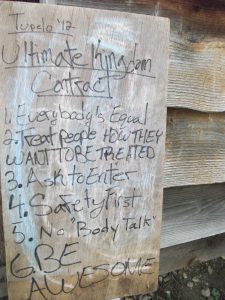 Tupelo '12
Ultimate Kingdom
Contract
1. Everybody is Equal
2. Treat people HOW THEY
WANT TO BE TREATED
3. Ask to Enter
4. Safety First
5. No "Body Talk"
6. BE
AWESOME